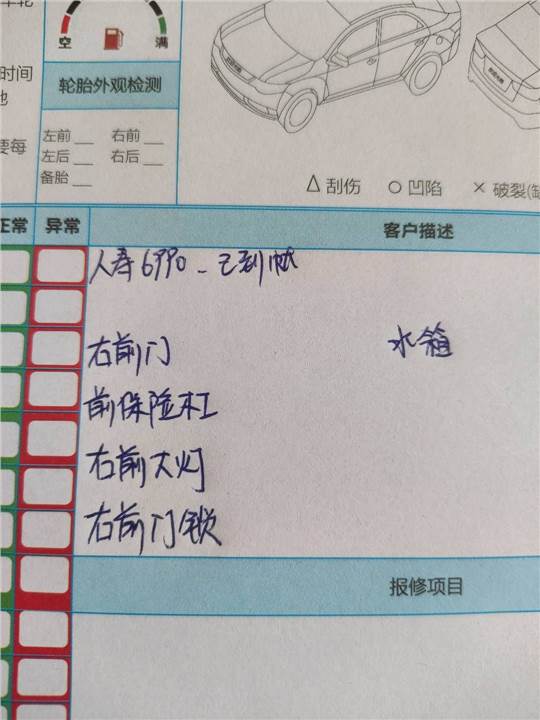 车轮
空 满
时间
轮胎外观检测
他
左前 右前
要每
左后 右后
备胎
△ 刮伤 ○ 凹陷 × 破裂(缺
正常 异常 客户描述
人寿6990 - 已到帐
右前门 水箱
前保险杠
右前大灯
右前门锁
报修项目